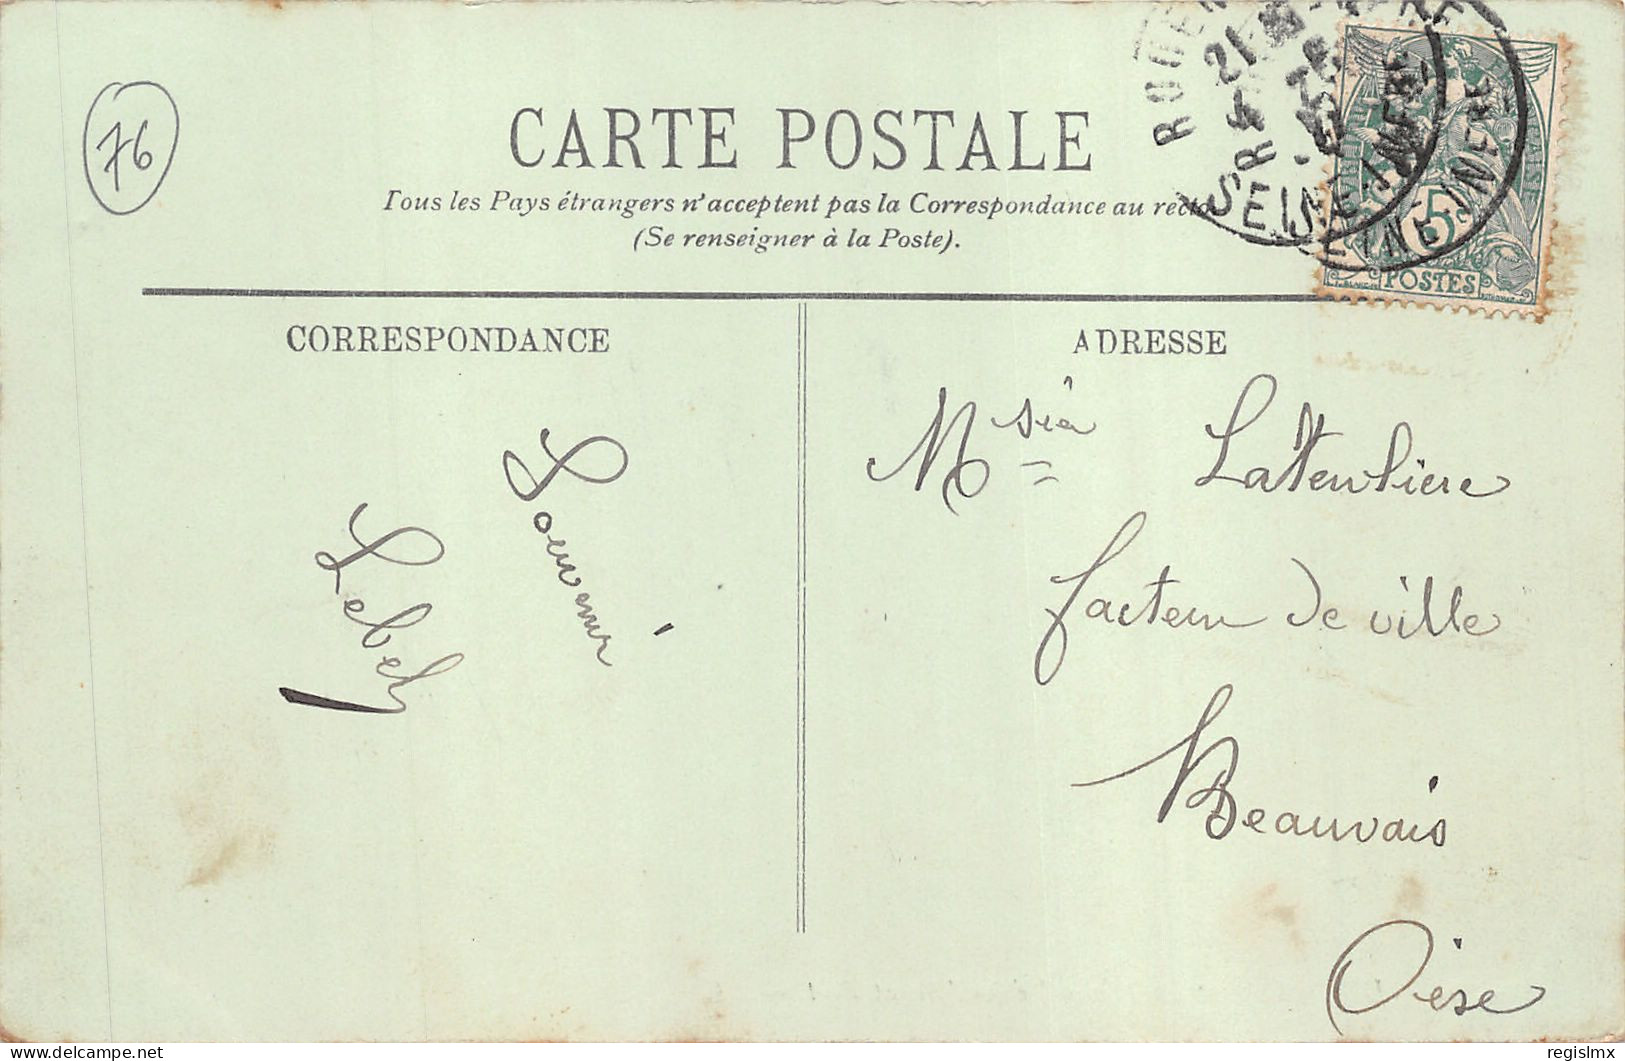 76
CARTE POSTALE
Tous les Pays étrangers n'acceptent pas la Correspondance au recto
(Se renseigner à la Poste).
ROUEN
21
SEINE-INFRE
SEINE-INFRE
5c
POSTES
CORRESPONDANCE
Souvenir
Lebel
ADRESSE
facteur de ville
Beauvais
Oise
regislmx